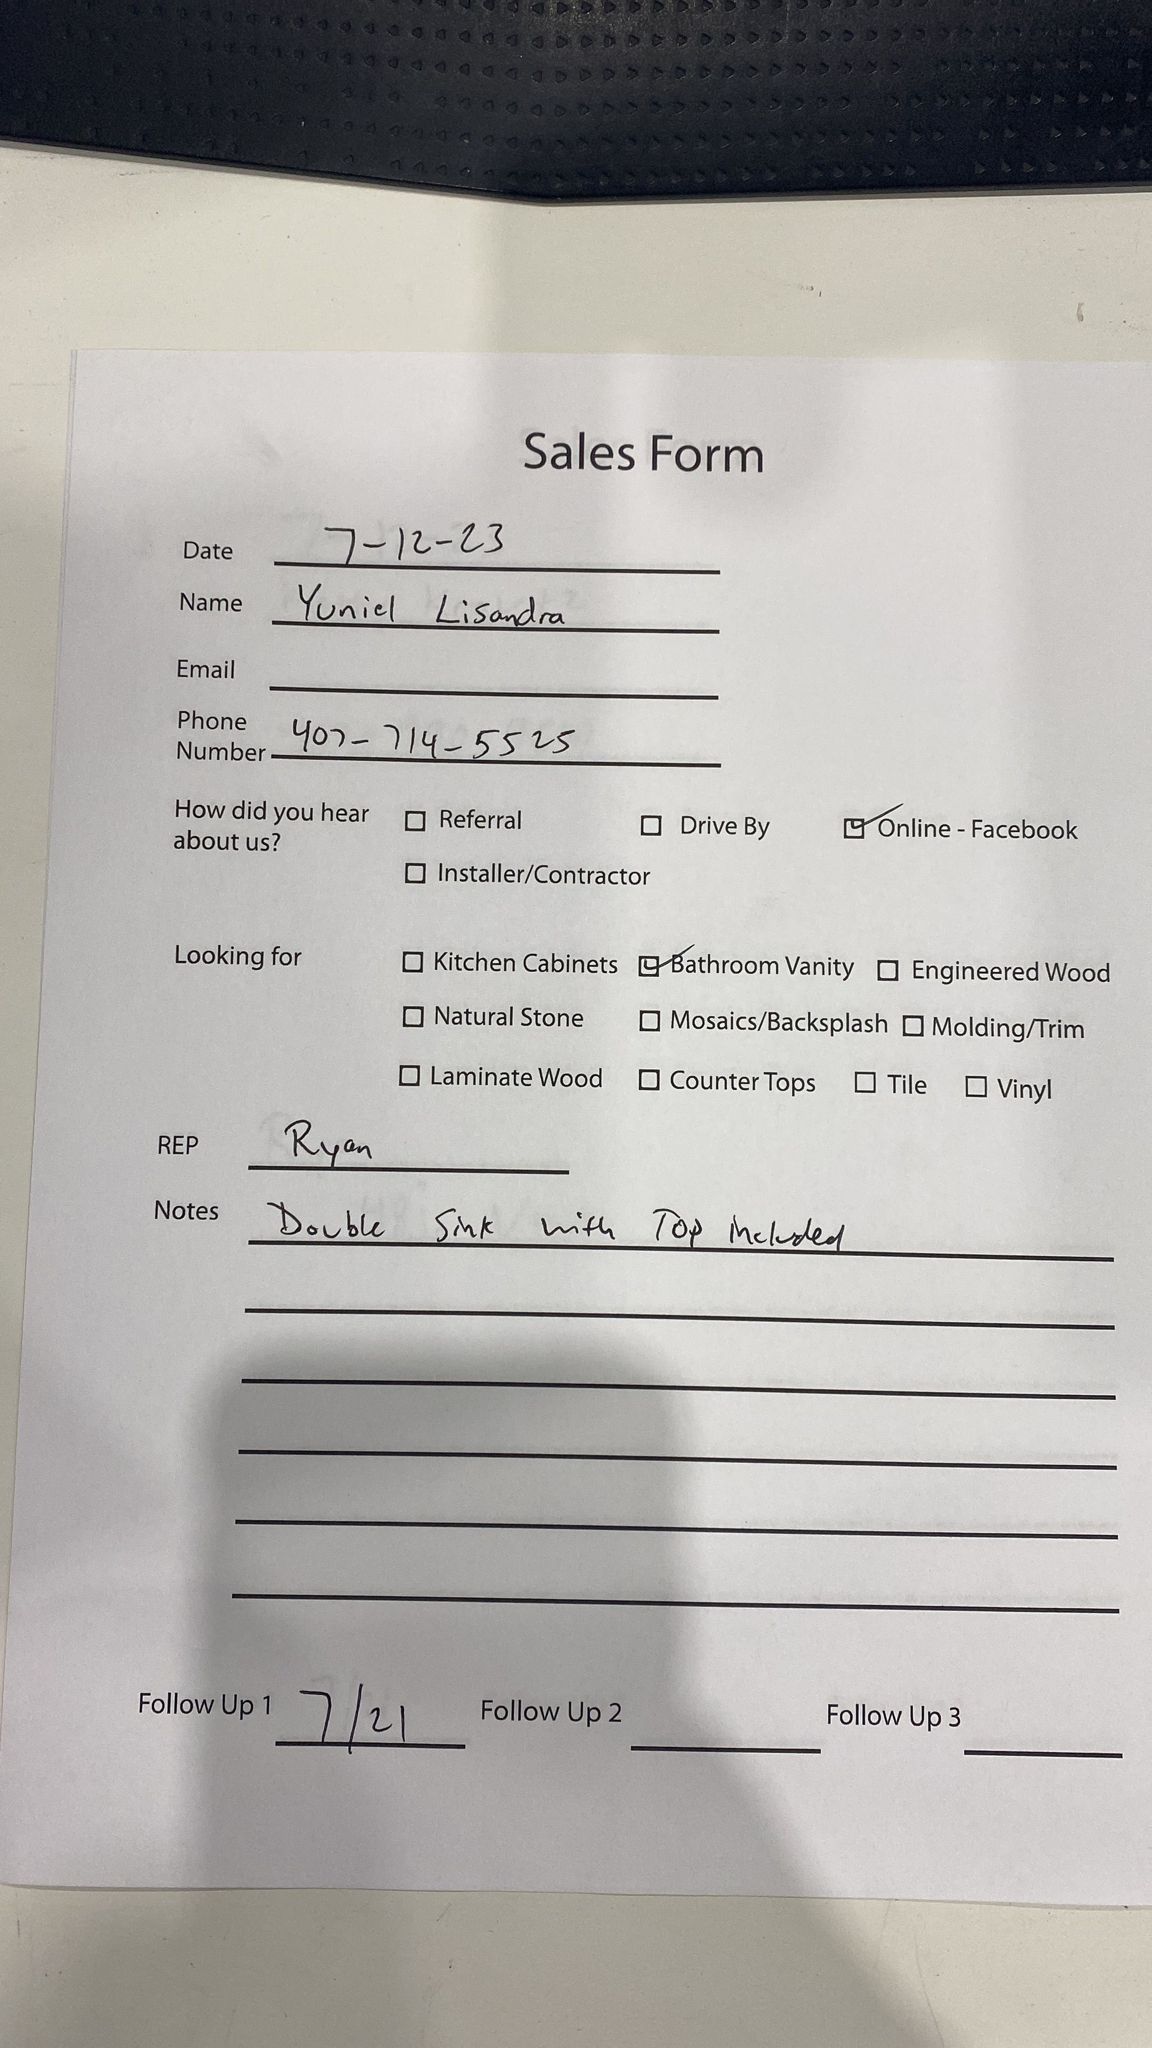 Sales Form
Date 7-12-23
Name Yuniel Lisandra
Email
Phone
Number 407-714-5525
How did you hear about us? ☐ Referral ☐ Drive By ☑ Online - Facebook
☐ Installer/Contractor
Looking for ☐ Kitchen Cabinets ☑ Bathroom Vanity ☐ Engineered Wood
☐ Natural Stone ☐ Mosaics/Backsplash ☐ Molding/Trim
☐ Laminate Wood ☐ Counter Tops ☐ Tile ☐ Vinyl
REP Ryan
Notes Double Sink with Top included
Follow Up 1 7/21 Follow Up 2 Follow Up 3